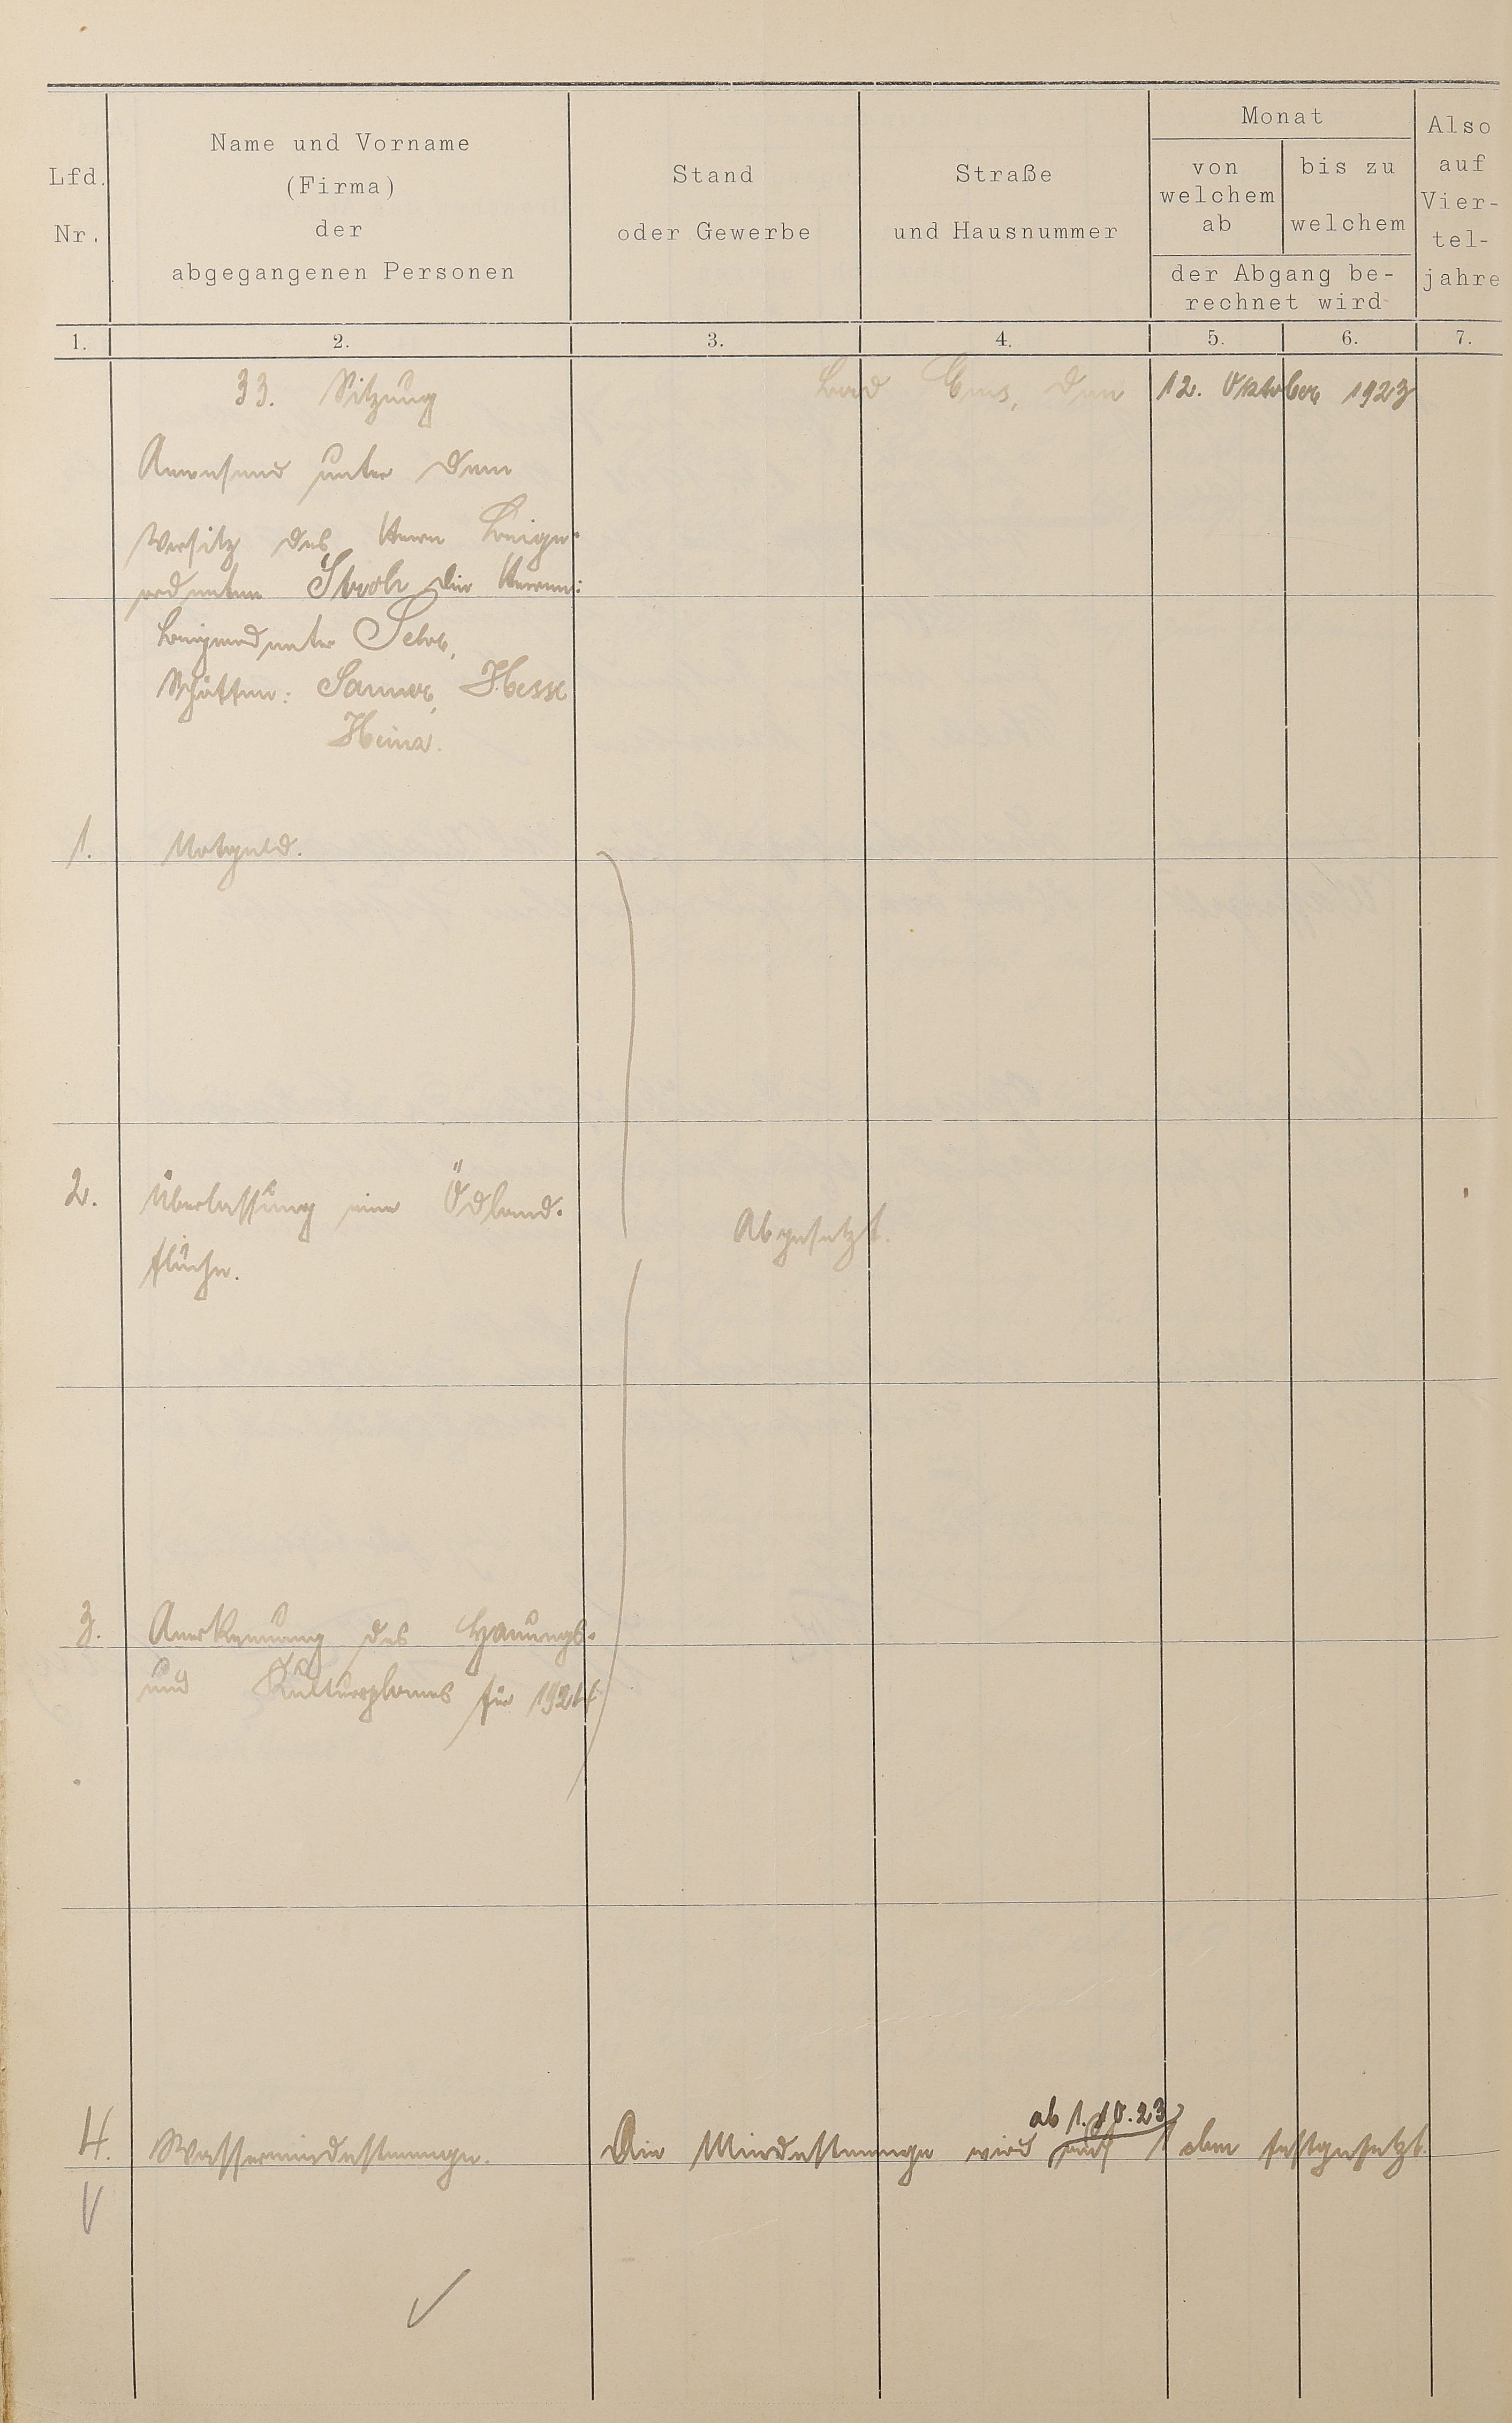 Lfd.
Nr.
Name und Vorname
(Firma)
der
abgegangenen Personen
Stand
oder Gewerbe
Straße
und Hausnummer
Monat
von
welchem
ab
bis zu
welchem
der Abgang be-
rechnet wird
Also
auf
Vier-
tel-
jahre
1. 2. 3. 4. 5. 6. 7.
33. Sitzung Bad Ems, den 12. Oktober 1923
Anwesend unter dem
Vorsitz des Herrn Beige-
ordneten Stroh die Herren:
Beigeordneter
Schöffen: Sauer, Hesse
Heinz.
1. Notgeld.
2. Überlassung einer Ödland-
fläche.
Abgesetzt.
3. Anerkennung des Hauungs-
und Kulturplanes für 1924.
ab 1.10.23
4. Wassermindestmenge. Die Mindestmenge wird auf 1 cbm festgesetzt.